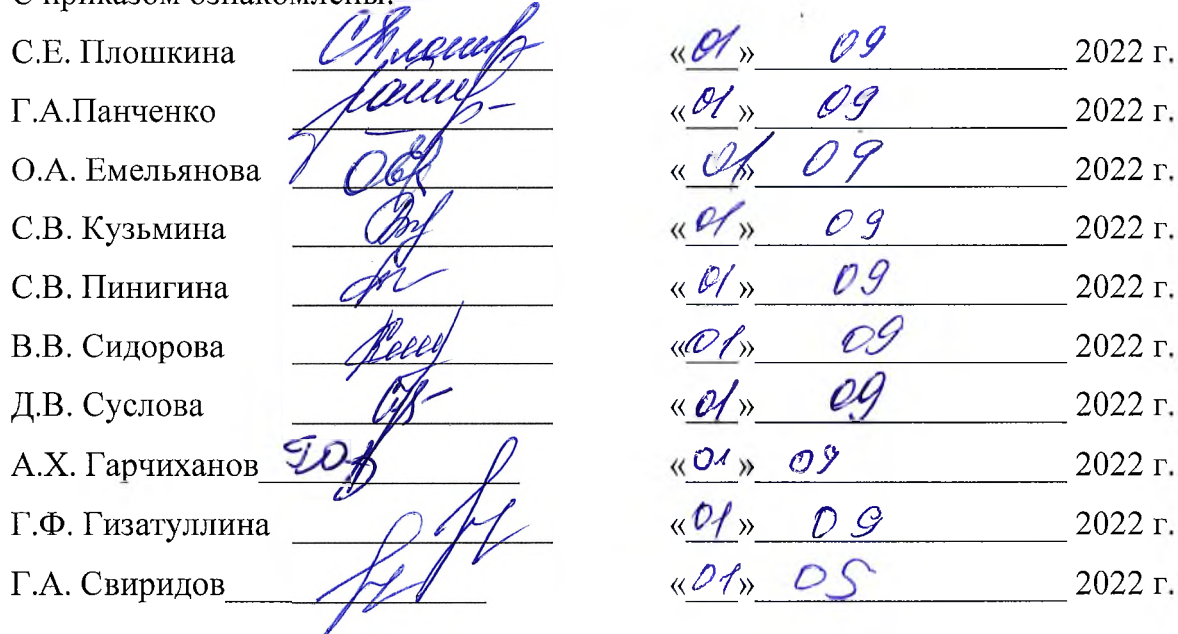 С приказом ознакомлены:
С.Е. Плошкина «01» 09 2022 г.
Г.А.Панченко «01» 09 2022 г.
О.А. Емельянова «01» 09 2022 г.
С.В. Кузьмина «01» 09 2022 г.
С.В. Пинигина «01» 09 2022 г.
В.В. Сидорова «01» 09 2022 г.
Д.В. Суслова «01» 09 2022 г.
А.Х. Гарчиханов «01» 09 2022 г.
Г.Ф. Гизатуллина «01» 09 2022 г.
Г.А. Свиридов «01» 2022 г.